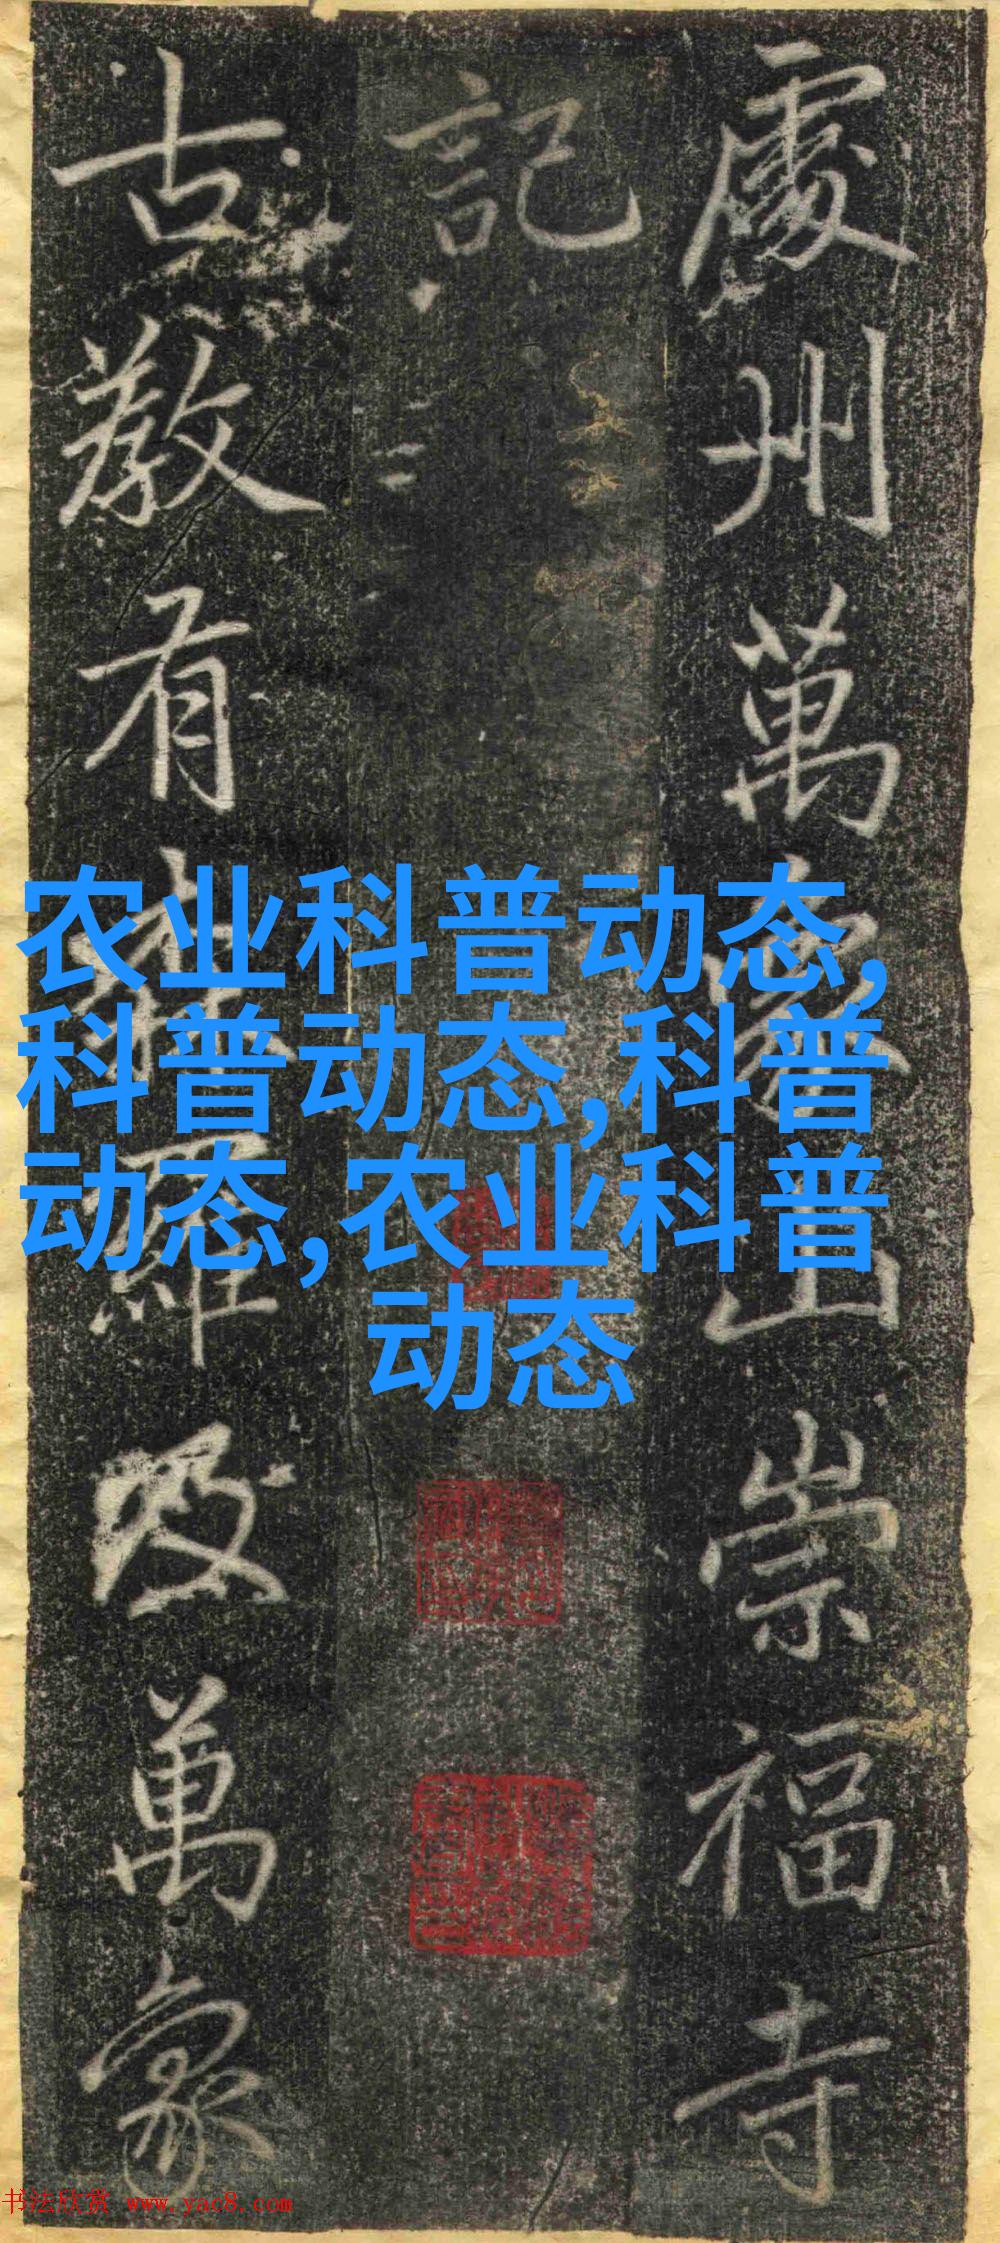 處州萬象山崇福寺
記
古教有森羅及萬象
农业科普动态,
科普动态,科普
动态,农业科普
动态
书法欣赏 www.yac8.com